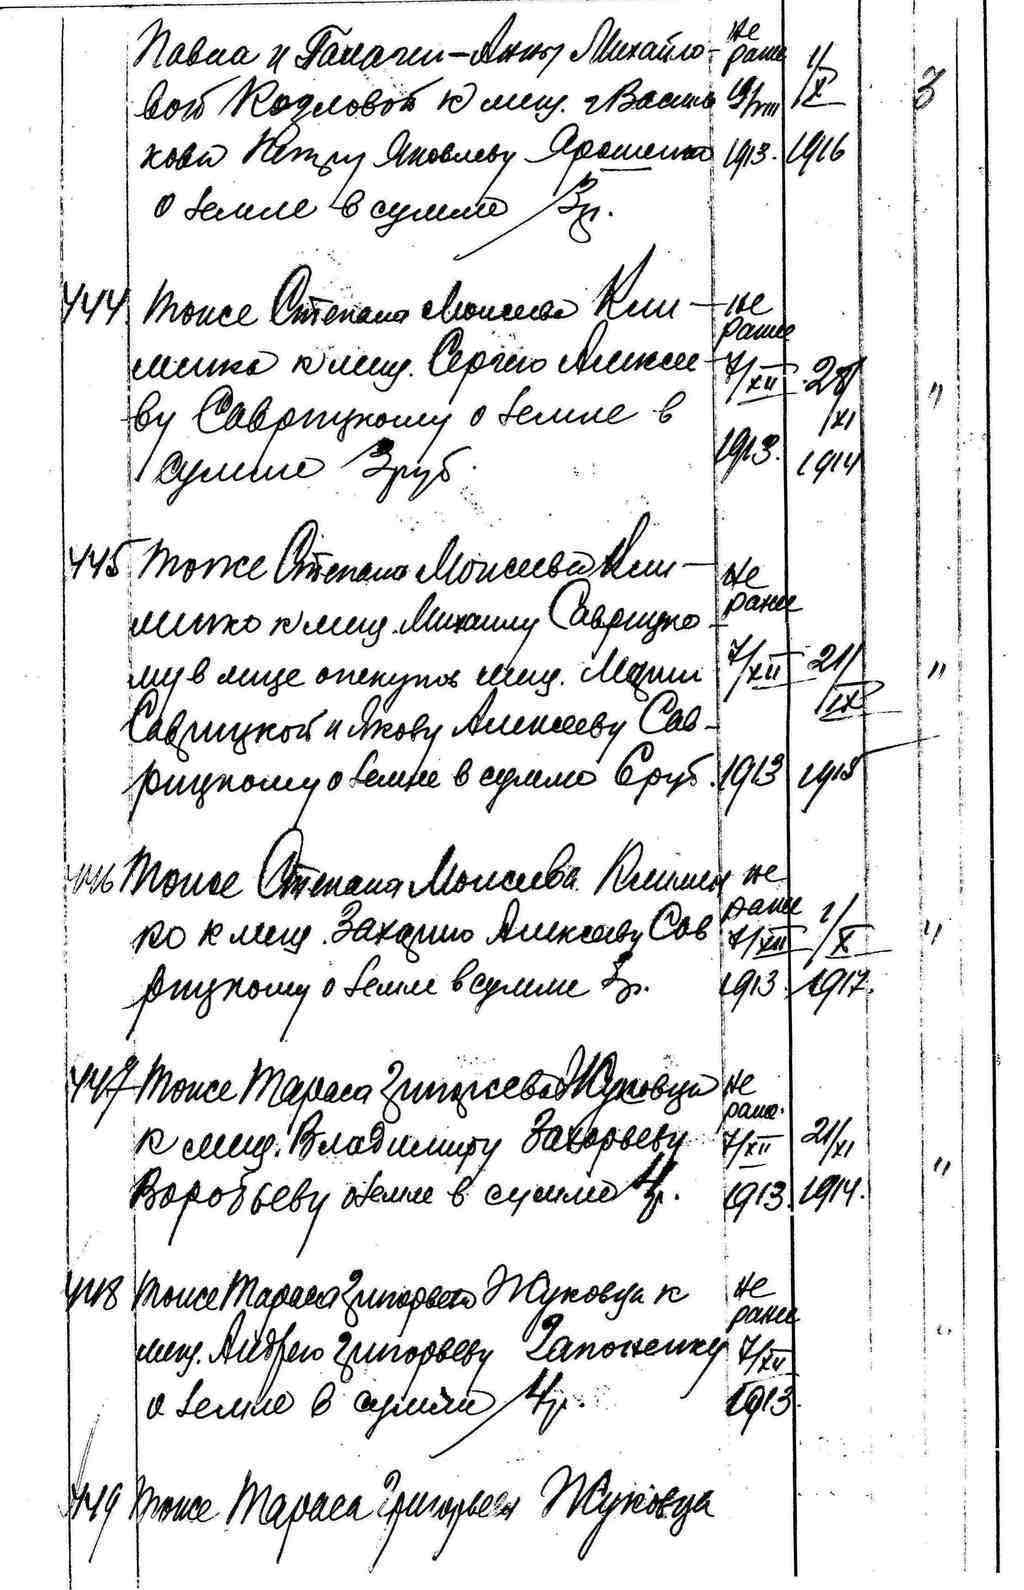 Павла и Пелагеи-Анны Михайло- не ранее 1/X 3
вой Козловой к мещ. г Василь 19/VIII
кова Петру Яковлеву Ярошенко 1913. 1916
о земле в сумме 3 р.
444 Тоже Степана Моисеева Кли- не ранее
менко к мещ. Сергею Алексее- 7/XII 28/XI "
ву Саврицкому о земле в 1913. 1914
сумме 3 руб.
445 Тоже Степана Моисеева Кли- не ранее
менко к мещ. Михаилу Саврицко-
му в лице опекунов мещ. Марии 7/XII 21/IX "
Саврицкой и Якову Алексееву Сав-
рицкому о земле в сумме 6 руб. 1913 1915
446 Тоже Степана Моисеева Климен не ранее
ко к мещ. Захарию Алексееву Сав 7/XII 1/X "
рицкому о земле в сумме 3 р. 1913. 1917.
447 Тоже Тараса Григорьева Жуковца не ранее
к мещ. Владимиру Захарьеву 7/XII 21/XI "
Воробьеву о земле в сумме 4 р. 1913. 1914.
448 Тоже Тараса Григорьева Жуковца к не ранее
мещ. Андрею Григорьеву Гапоненку 7/XII "
о земле в сумме 4 р. 1913.
449 Тоже Тараса Григорьева Жуковца